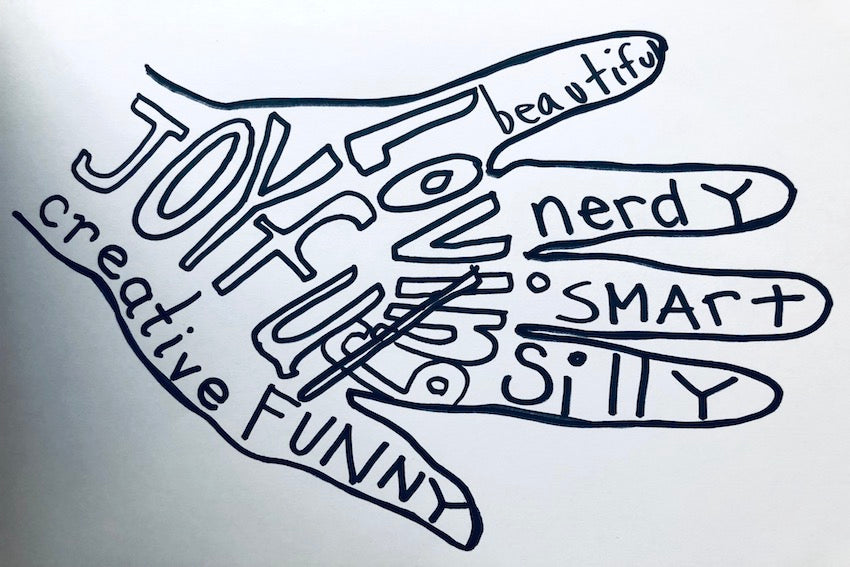 beautiful
nerdy
SMArt
Silly
FUNNY
creative
JOYfUl
LOVING